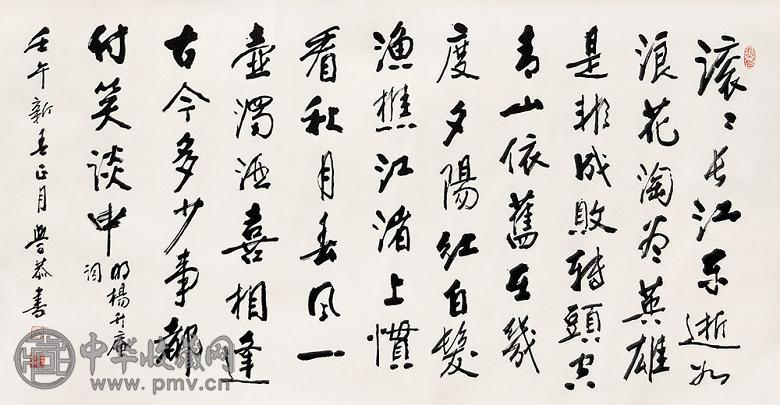 滚〻长江东逝水
浪花淘尽英雄
是非成敗轉頭空
青山依舊在幾
度夕陽红白髮
渔樵江渚上慣
看秋月春风一
壺濁酒喜相逢
古今多少事都
付笑談中
明楊升庵
词
壬午新春正月譽恭书
中华收藏网
www.pmv.cn